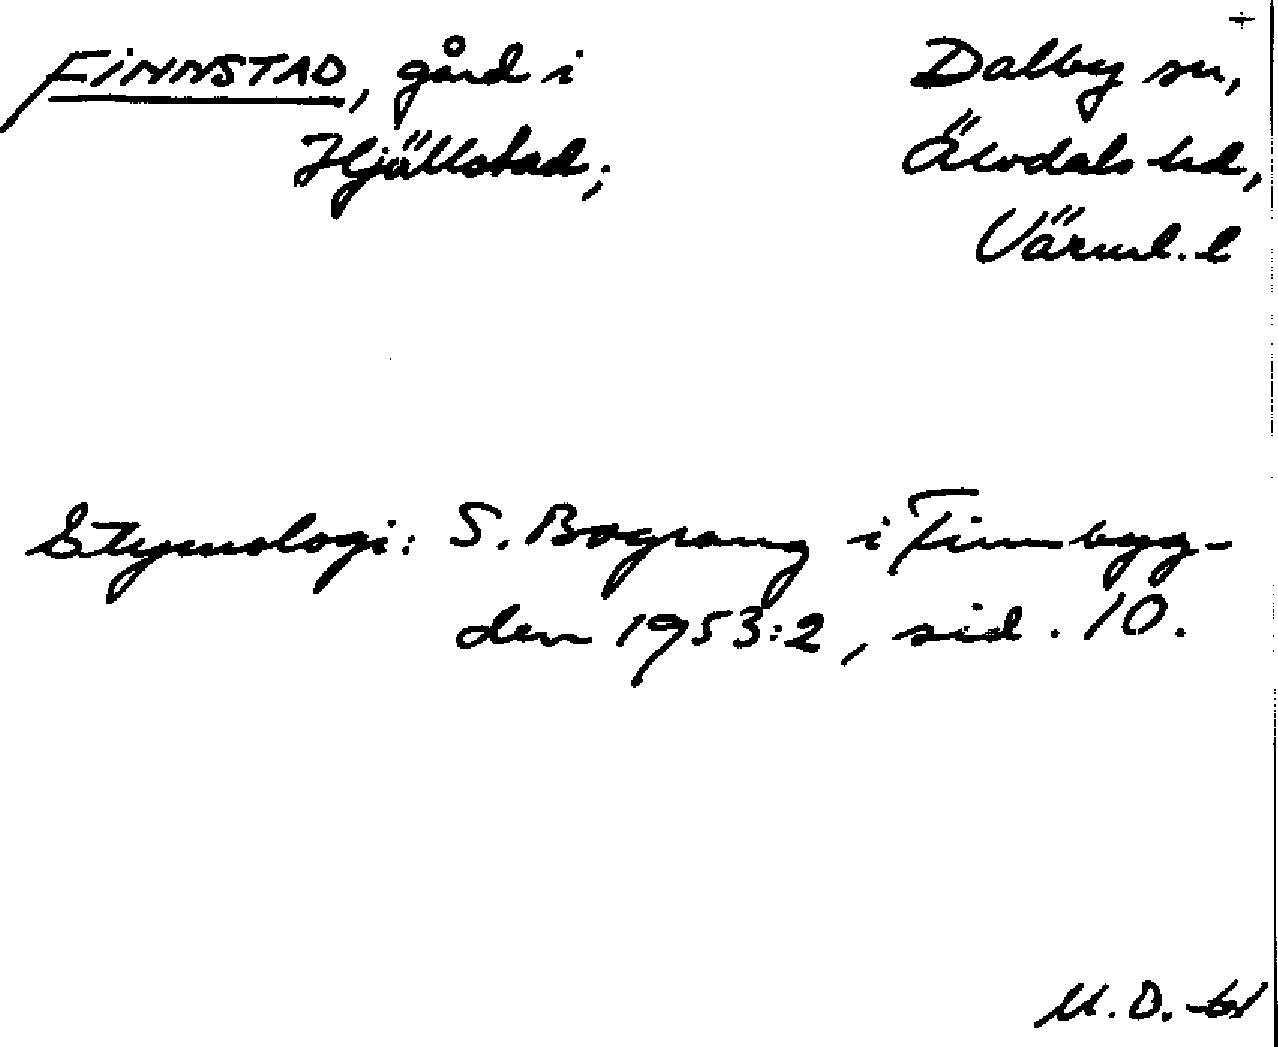 FINNSTAD, gård i
Hjällstad;
Dalby sn,
Älvdals hd,
Värml. l
Etymologi: S. Bograng i Finnbyg-
den 1953:2, sid. 10.
M. D.